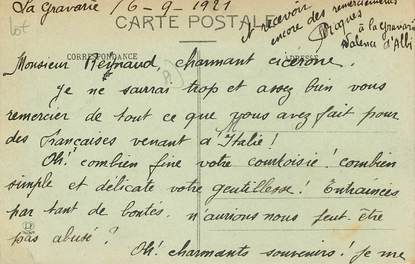 La Gravarie 16-9-1921
et recevoir
encore des remerciements
à la Gravarie
Valence d'Albi
CARTE POSTALE
CORRESPONDANCE
Lot
Monsieur Reynaud, charmant cicérone,
Je ne saurai trop et assez bien vous
remercier de tout ce que vous avez fait pour
des françaises venant d'Italie!
Oh! combien fine votre courtoisie! combien
simple et délicate votre gentillesse! Entrainées
par tant de bontés, n'aurions nous peut être
pas abusé?
Oh! charmants souvenirs! je me